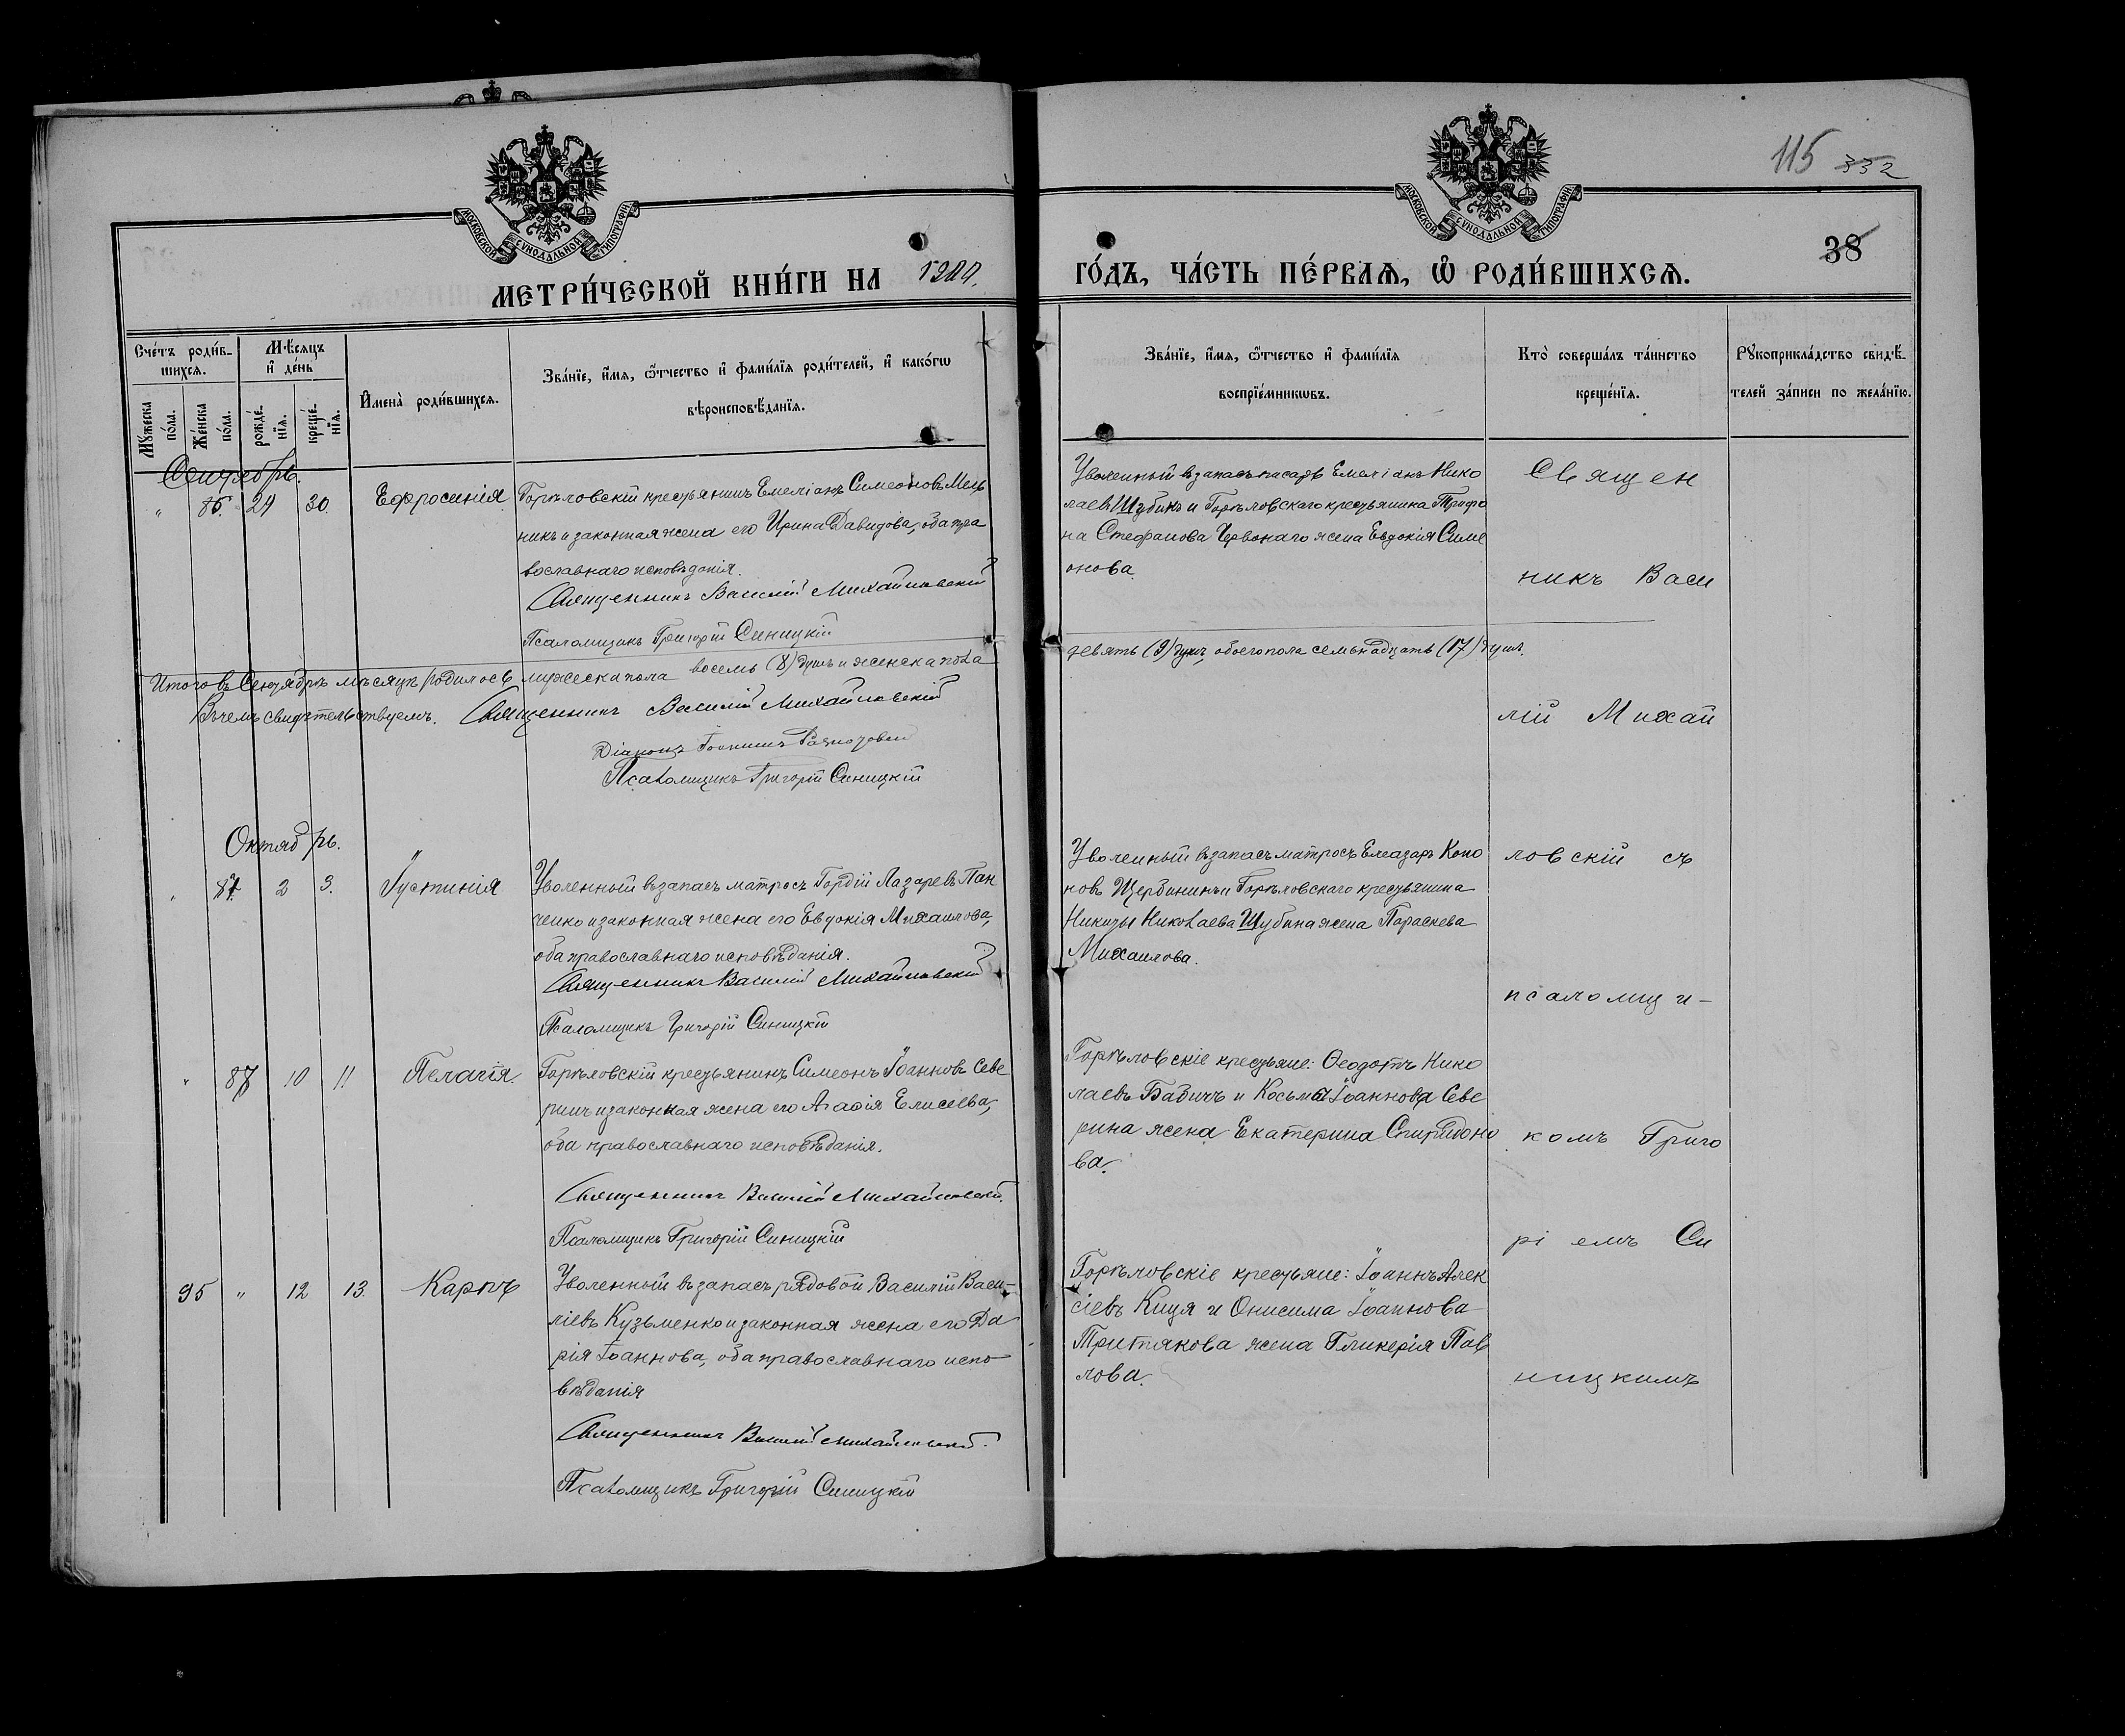 115 332
38
МОСКОВСКОЙ СѴНОДАЛЬНОЙ ТИПОГРАФІИ
МОСКОВСКОЙ СѴНОДАЛЬНОЙ ТИПОГРАФІИ
МЕТРИ́ЧЕСКОЙ КНИ́ГИ НА
ГО́ДЪ, ЧА́СТЬ ПЕ́РВАѦ, Ѡ҆ РОДИ́ВШИХСѦ.
Сче́тъ роди́в-
шихсѧ.
Мꙋ́жеска
по́ла.
Же́нска
по́ла.
Мѣ́сѧцъ
и҆ де́нь
рожде́-
нїѧ.
креще́-
нїѧ.
И҆мена̀ роди́вшихсѧ.
Зва́нїе, и҆́мѧ, ѻ҆́тчество и҆ фами́лїѧ роди́телей, и҆ како́гѡ
вѣроисповѣ́данїѧ.
Зва́нїе, и҆́мѧ, ѻ҆́тчество и҆ фами́лїѧ
воспрїе́мникѡвъ.
Кто̀ соверша́лъ та́инство
креще́нїѧ.
Рꙋкоприкла́дство свидѣ́-
телей за́писи по жела́нїю.
Сентябрь.
" 85. 24 30. Ефросинія
Горѣловскій крестьянинъ Емеліанъ Симеоновъ Мель
никъ и законная жена его Ирина Давидова, оба пра
вославнаго исповѣданія.
Священникъ Василій Михайловскій
Псаломщикъ Григорій Синицкій
Уволенный въ запасъ писарь Емеліанъ Нико
лаевъ Шубинъ и Горѣловскаго крестьянина Трофи
на Стефанова Червонаго жена Евдокія Симе
онова.
Итого въ Сентябрѣ мѣсяцѣ родилось мужеска пола восемь (8) душъ и женска пола
девять (9) душъ, обоего пола семьнадцать (17) душъ.
Въ чемъ свидѣтельствуемъ. Священникъ Василій Михайловскій
Діаконъ Іоаннъ
Псаломщикъ Григорій Синицкій
Октябрь.
" 2 3. Іустинія
Уволенный въ запасъ матросъ Гордій Лазаревъ Пан
ченко и законная жена его Евдокія Михаилова,
оба православнаго исповѣданія.
Священникъ Василій Михайловскій
Псаломщикъ Григорій Синицкій
Уволенный въ запасъ матросъ Елеазаръ Коно
новъ Щербининъ и Горѣловскаго крестьянина
Никиты Николаева Шубина жена Параскева
Михаилова.
" 87 10 11 Пелагія.
Горѣловскій крестьянинъ Симеонъ Іоанновъ Севе
ринъ и законная жена его Агафія Елисеева,
оба православнаго исповѣданія.
Священникъ Василій Михайловскій.
Псаломщикъ Григорій Синицкій
Горѣловскіе крестьяне: Ѳеодотъ Нико
лаевъ Бабичъ и Косьмы Іоаннова Севе
рина жена Екатерина Спиридоно
ва.
95 " 12 13. Карпъ
Уволенный въ запасъ рядовой Василій Васи-
ліевъ Кузьменко и законная жена его Да
рія Іоаннова, оба православнаго испо
вѣданія
Священникъ Василій Михайловскій.
Псаломщикъ Григорій Синицкій
Горѣловскіе крестьяне: Іоаннъ Алек
сіевъ Куця и Онисима Іоаннова
Третякова жена Гликерія Пав
лова.
Священ
никъ Васи
лій Михай
ловскій съ
псаломщи-
комъ Григо
ріемъ Си
ницкимъ